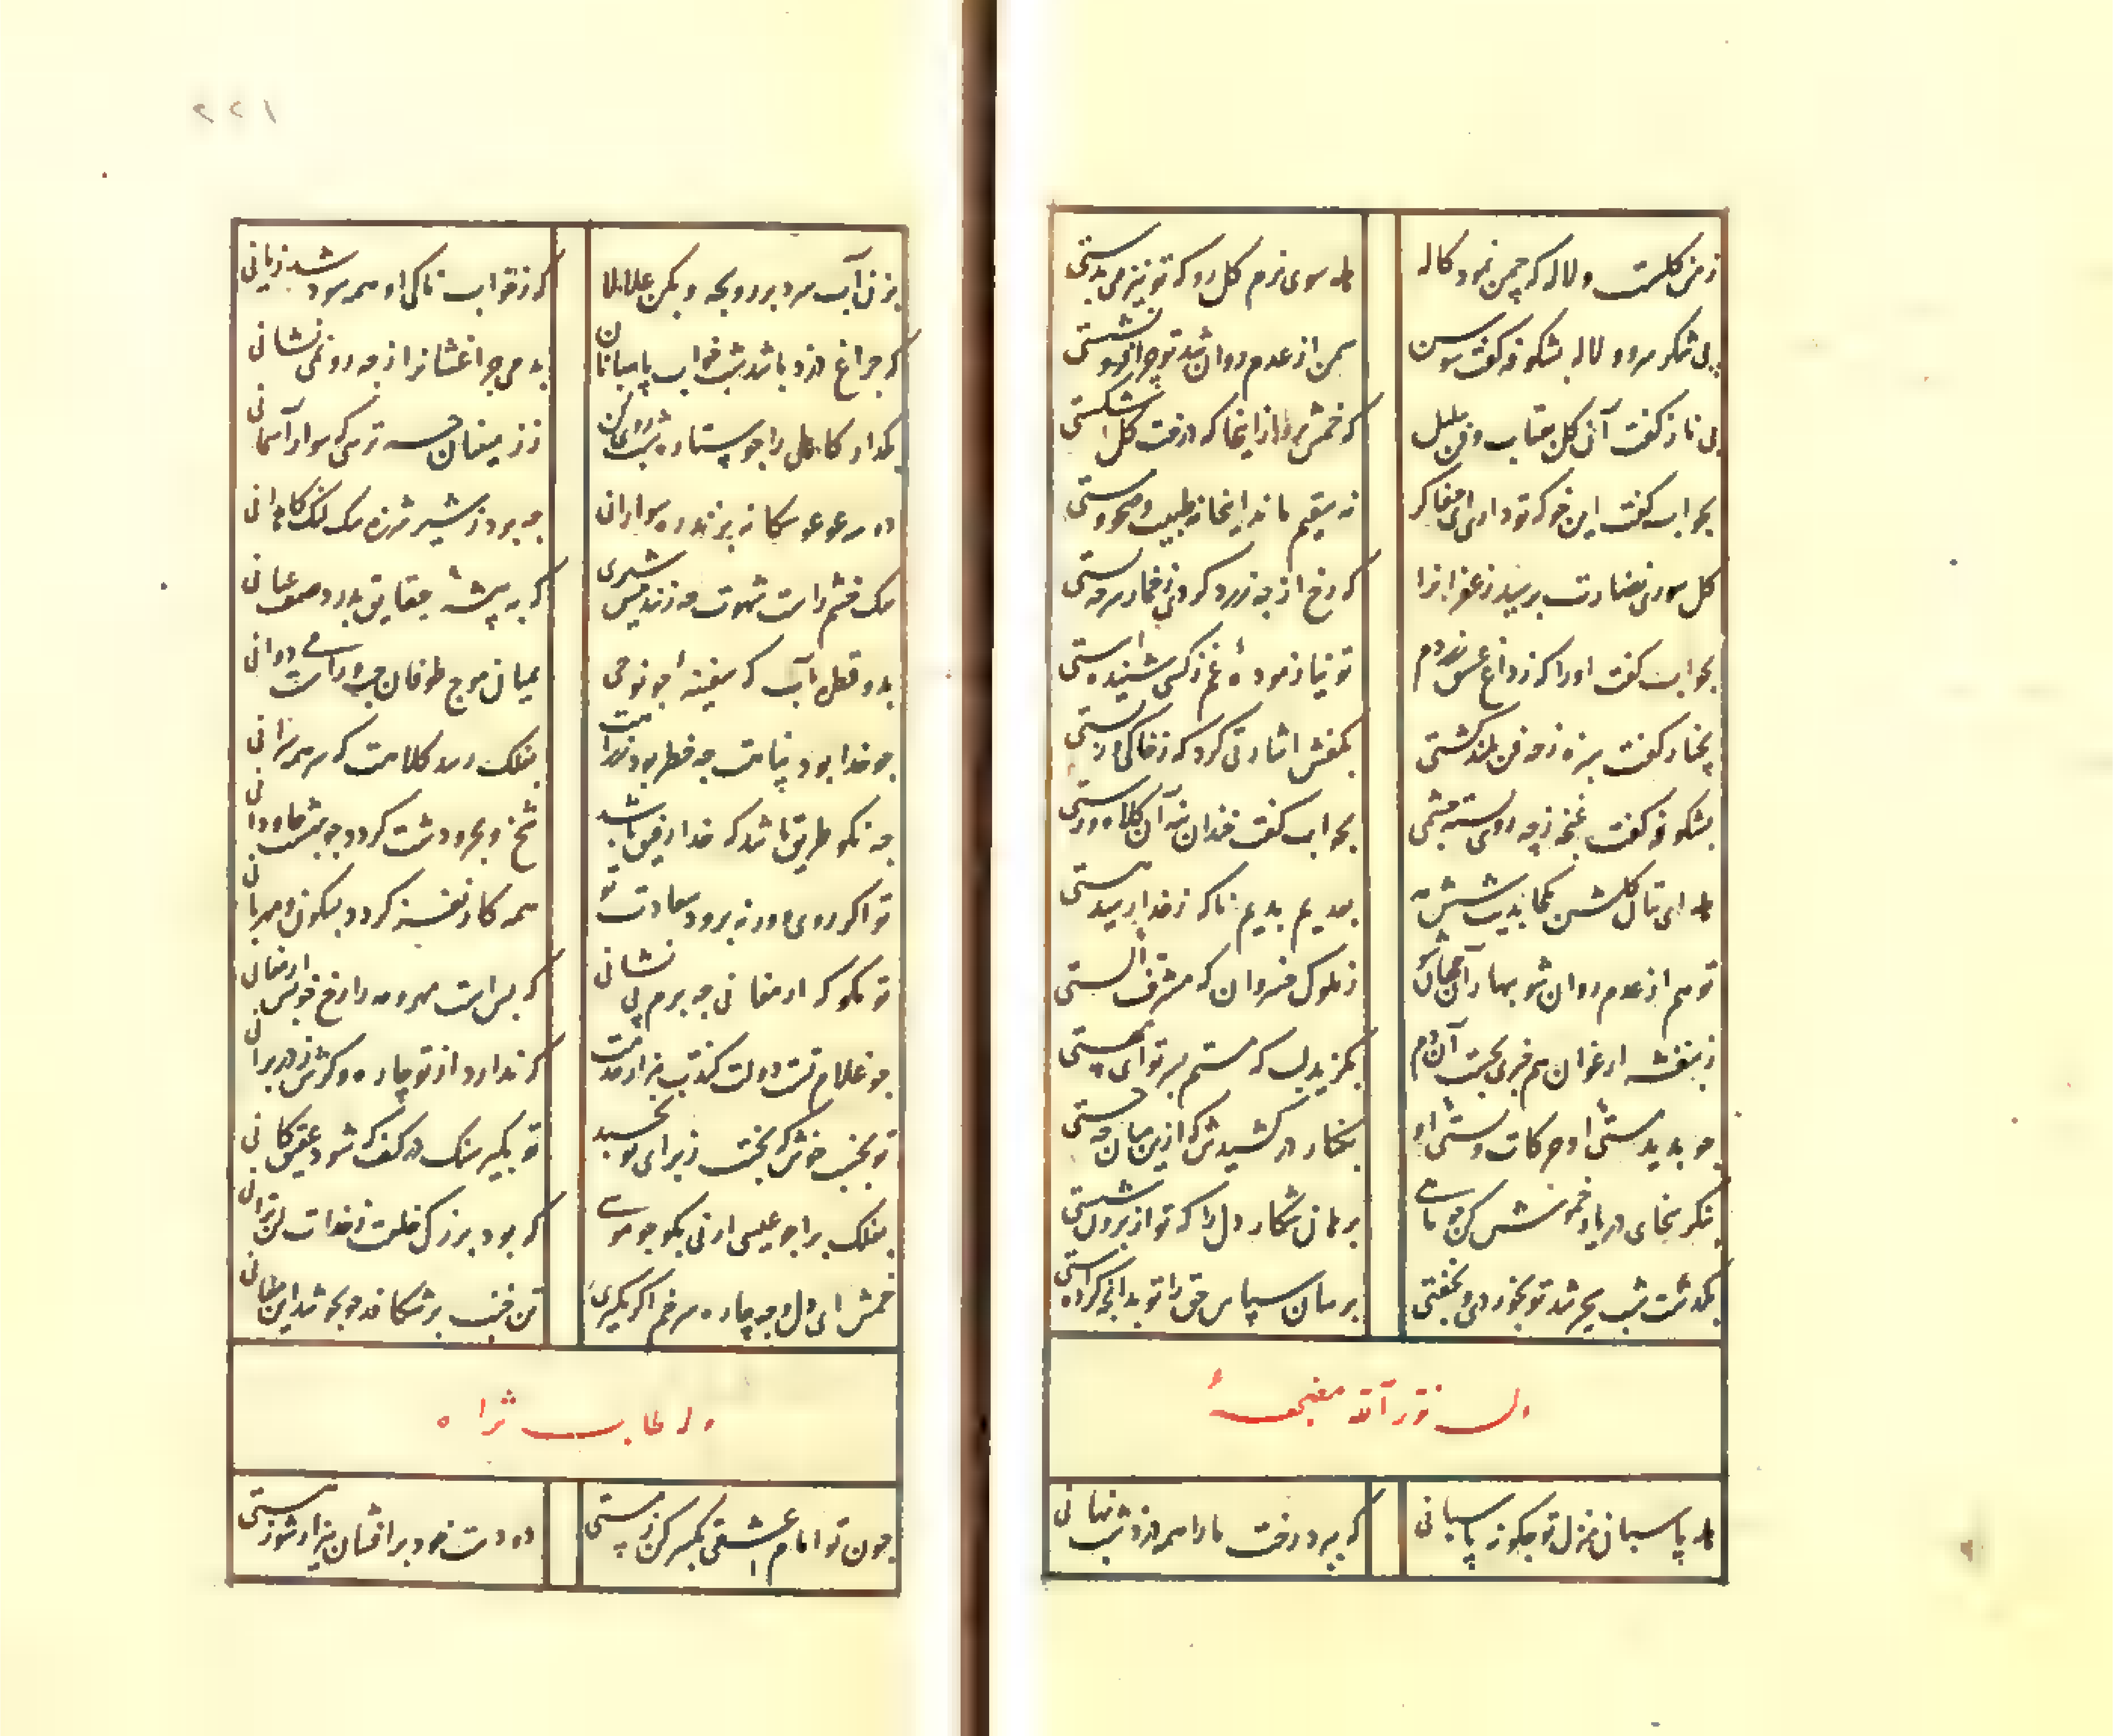 ز من گلست و لاله که چمن نمود کاله هله سوی بزم گل رو که تو نیز می پرستی
پی شکر سرو و لاله بشکوفه گفت سوسن سمن از عدم روان شد تو چرا فرو نشستی
بی ناز گفت آن گل بعتاب و فن ببلبل که خمش برو از اینجا که درخت گل شکستی
بجواب گفت این خو که تو داری ای جفاگر نه سقیم ماند اینجا نه طبیب و صحو و مستی
گل سوری نضارت برسید زعفرانرا که رخ از چه زرد کردی ز خمار سر چه بستی
بجواب گفت او را که ز داغ عشق زردم تو نیازموده غم ز کسی شنیده استی
بچنار گفت سبزه ز چه فن بلند گشتی بنفش اشارتی کرد که ز خاکی و ز پستی
بشکوفه گفت غنچه ز چه روی بسته چشمی بجواب گفت خندان نه آن کلاه رستی
هله ای بتان گلشن بکجا بدیت شش مه بعدم بدیم ناگه ز خدا رسید هستی
تو هم از عدم روان شو بهار آن جهان شو ز ملوک خسروان که مشرف الستی
ز بنفشه ارغوان هم خبری بجست آن دم بگزید لب که مستم بسر تو ای مهستی
چو بدید مستی او حرکات و مستی او بکنار در کشیدش که ازین میان تو جستی
بنگر سخای دریا و خموش کن چو ماهی برهان شکار دل را که تو از برون شستی
بگذشت شب سحر شد تو نخوردی و نخفتی برسان سپاس حق را تو بدانچه کرده استی
نور الله مضجعه
هله پاسبان منزل تو چگونه پاسبانی که ببرد رخت ما را همه دزد شب نهانی
بزن آب سرد بر رو بجه و بکن علالا که ز خواب ناکی او همه سود شد زیانی
که چراغ دزد باشد شب و خواب پاسبانان بدمی چراغشانرا ز چه رو نمی نشانی
بگذار کاهلی را چو ستاره شب روی کن ز زمینیان چه ترسی که سوار آسمانی
دو سه عوعو سگانه نزند ره سواران چه برد ز شیر شرزه سگ لنگ کاهدانی
سگ خشم راست شهوت چه زنند پیش شیری که به بیشه حقایق بدرد صف عیانی
بدو قطره آب که سفینه او نوحی بمیان موج طوفان چپ و راست می دوانی
چو خدا بود پناهت چه خطر بود ز راهت بفلک رسد کلاهت که سر همه سرانی
چه نکو طریق باشد که خدا رفیق باشد سفر درشت گردد چو بهشت جاودانی
تو اگر روی وگر نه برود سعادت تو همه کار بر نفسه گردد بسکون و مهربانی
تو مگو که ارمغانی چه برم پی نشانی که بس است مهر و مه را رخ خویش ارمغانی
چو غلام تست دولت کندت هزار خدمت که ندارد از تو چاره وگرش ز در برانی
تو بخسب خوش که بختت ز برای تو نخسبد تو بگیر سنگ در کف که شود عقیق کانی
بفلک برآ چو عیسی ارنی بگو چو موسی که بود بزرگی خلعت ز خدات لن ترانی
خمش ای دل و چه چاره سر خم اگر بگیری تن خنب برشکافد چو بجوشد این معانی
وله طاب ثراه
چون تو امام عشقی تکبیر کن ز مستی دو دست خود برافشان بیزار شو ز هستی